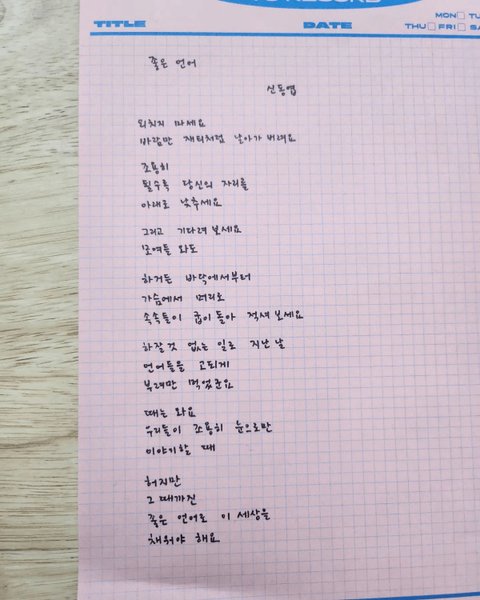 TO RECORD
TITLE DATE MON TU
THU FRI SA
좋은 언어
신동엽
외치지 마세요
바람만 재티처럼 날아가 버려요
조용히
될수록 당신의 자리를
아래로 낮추세요
그리고 기다려 보세요
모여들 와도
하거든 바닥에서부터
가슴에서 머리로
속속들이 굽이돌아 적셔 보세요
하잘 것 없는 일로 지난 날
언어들을 고되게
부려만 먹었군요
때는 와요
우리들이 조용히 눈으로만
이야기할 때
허지만
그 때까진
좋은 언어로 이 세상을
채워야 해요